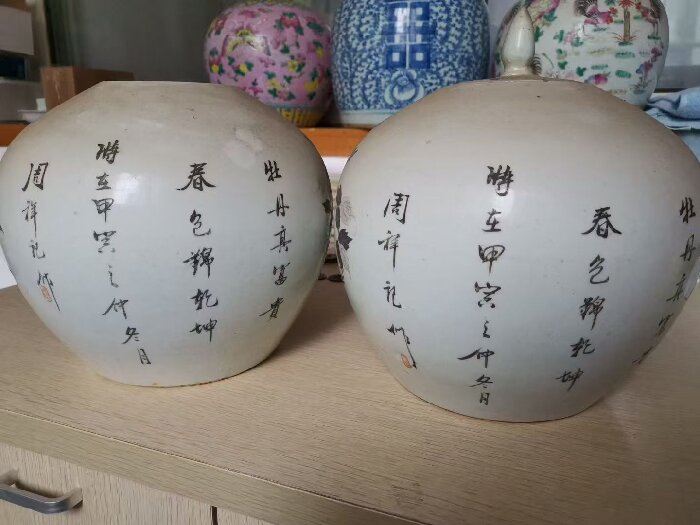 牡丹真富貴
春色錦乾坤
時在甲寅之仲冬月
周祥礼作
牡丹真富
春色錦乾坤
時在甲寅之仲冬月
周祥礼作
囍